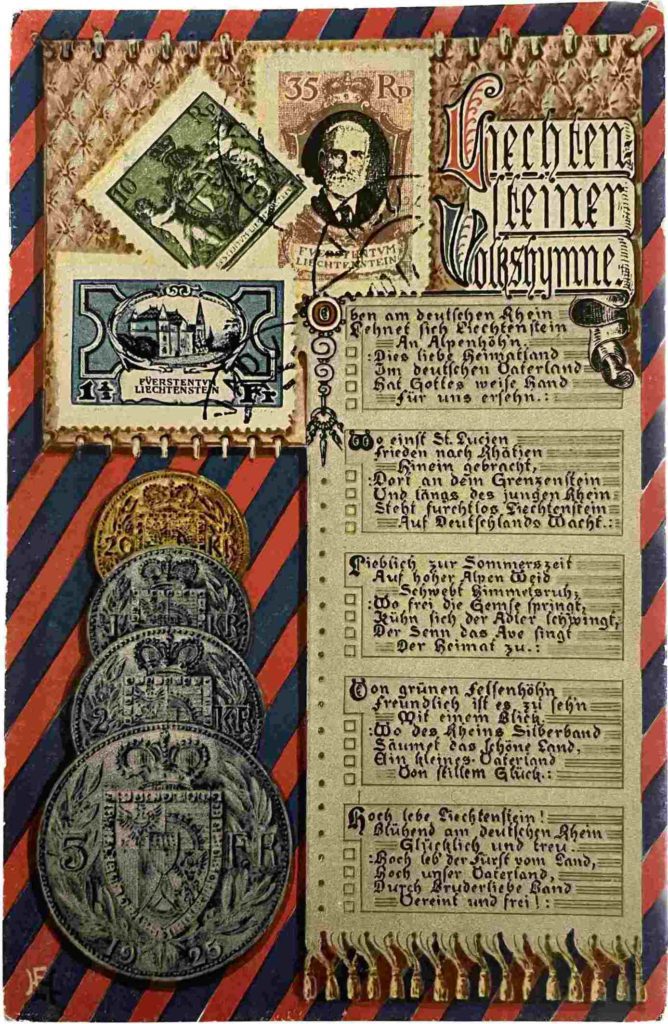 10
Rp
35 Rp
FVERSTENTVM
LIECHTENSTEIN
1¼ Fr
FÜERSTENTVM
LIECHTENSTEIN
Liechten
steiner
Volkshymne.
Oben am deutschen Rhein
Lehnet sich Liechtenstein
An Alpenhöhn.
:Dies liebe Heimatland
Im deutschen Vaterland
Hat Gottes weise Hand
Für uns ersehn.:
Wo einst St. Lucien
Frieden nach Rhätien
Hinein gebracht,
:Dort an dem Grenzenstein
Und längs des jungen Rhein
Steht furchtlos Liechtenstein
Auf Deutschlands Wacht.:
Lieblich zur Sommerszeit
Auf hoher Alpen Weid
Schwebt Himmelsruh;
:Wo frei die Gemse springt,
Kühn sich der Adler schwingt,
Der Senn das Ave singt
Der Heimat zu.:
Von grünen Felsenhöhn
Freundlich ist es zu seh'n
Mit einem Blick,
:Wo des Rheins Silberband
Säumet das schöne Land,
Ein kleines Vaterland
Von stillem Glück.:
Hoch lebe Liechtenstein!
Blühend am deutschen Rhein
Glücklich und treu.
:Hoch leb' der Fürst vom Land,
Hoch unser Vaterland,
Durch Bruderliebe Band
Vereint und frei!:
20 KR
1 KR
2 KR
5 FR
1925